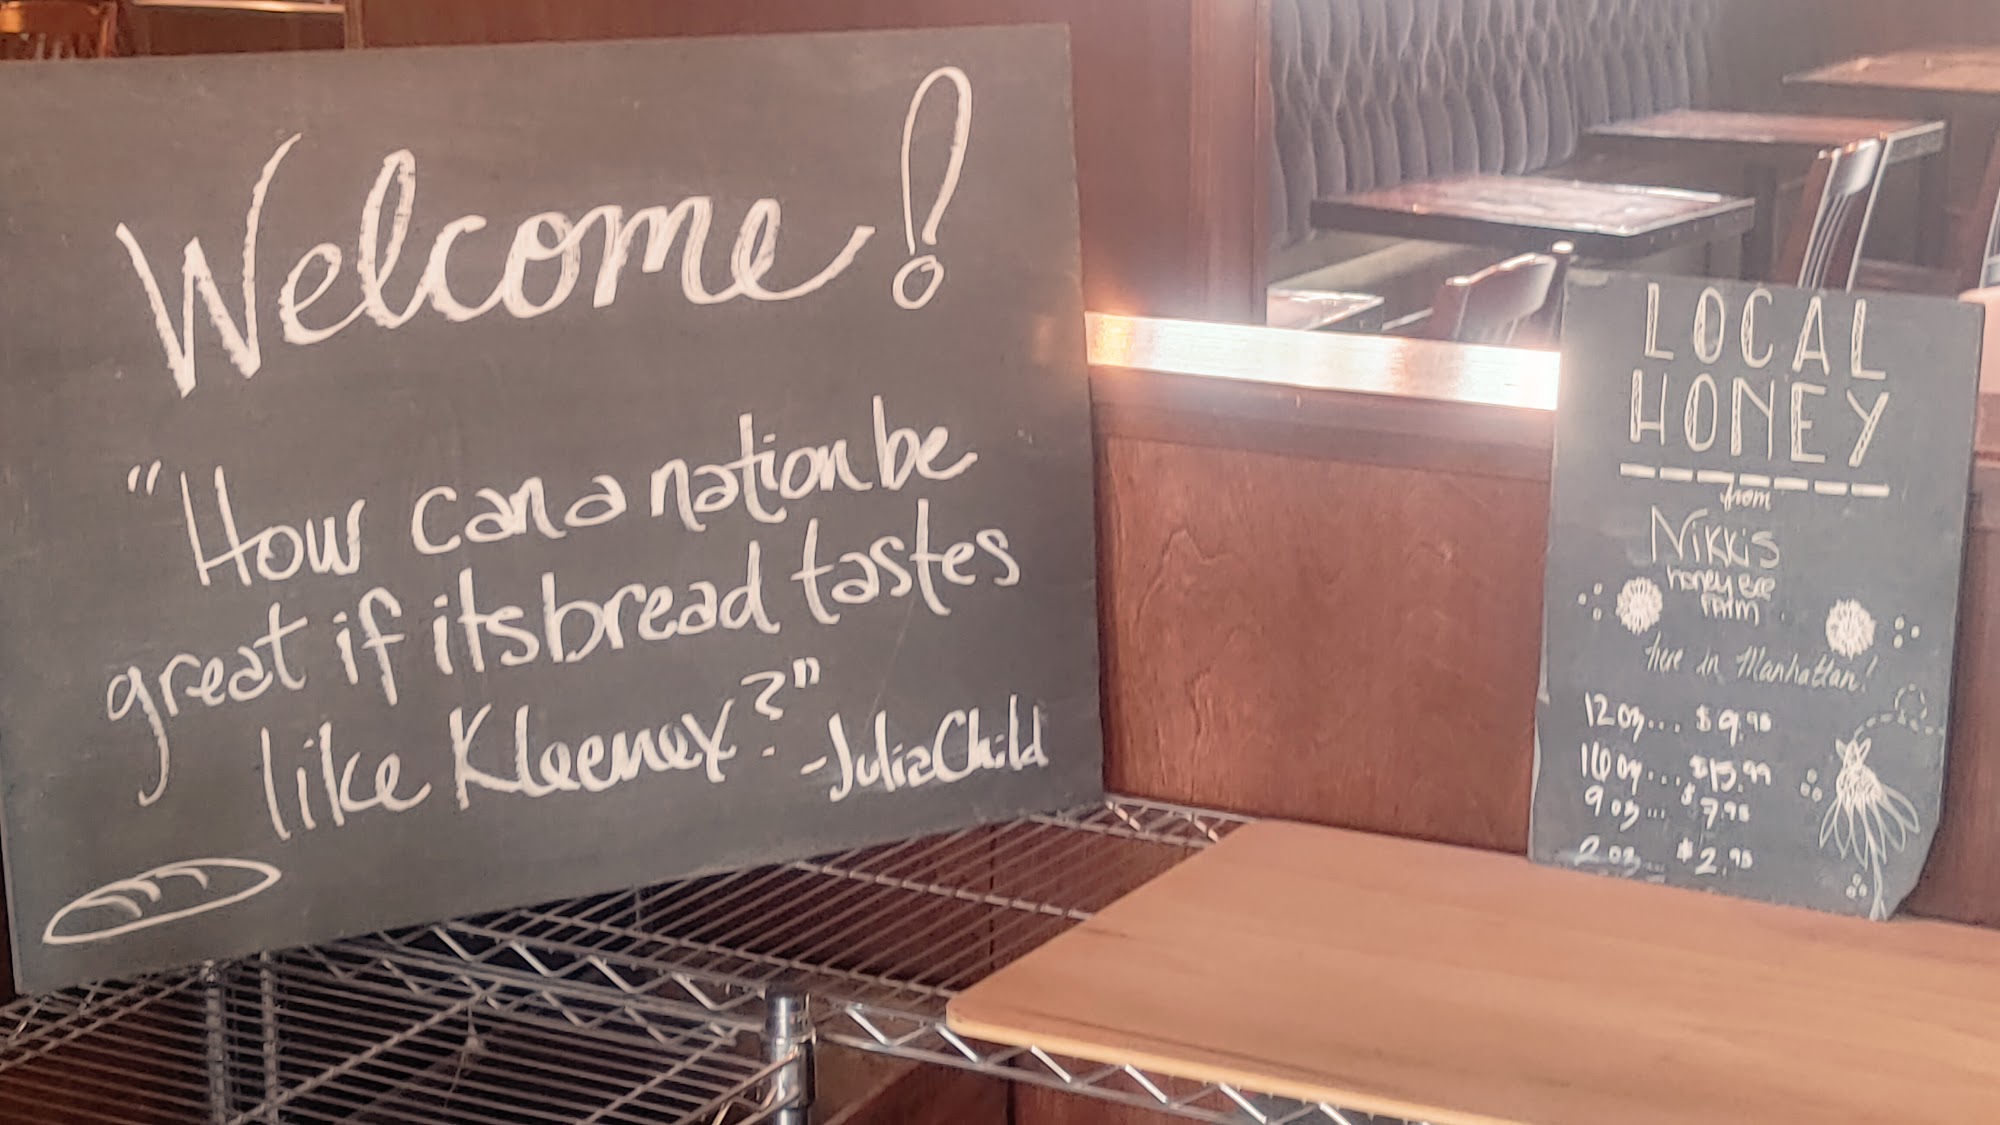 Welcome!
"How can a nation be
great if its bread tastes
like Kleenex?"
-Julia Child
LOCAL
HONEY
from
Nikkis
honey bee
farm
here in Manhattan!
12oz... $9.98
16oz... $15.99
9oz... $7.98
2oz... $2.98